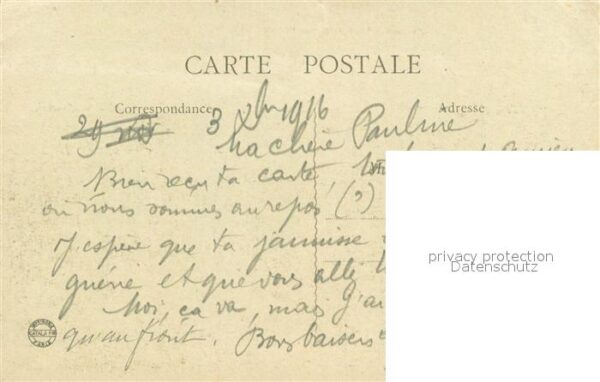 CARTE POSTALE
Correspondance
Adresse
29 3 Xbre 1916
Ma chère Pauline
Bien reçu ta carte,
où nous sommes au repos (?)
J'espère que ta jaunisse
guérie et que vous allez
Moi, ça va, mais j'ai
qu'au front. Bons baisers
privacy protection
Datenschutz
CATALA FR
PARIS